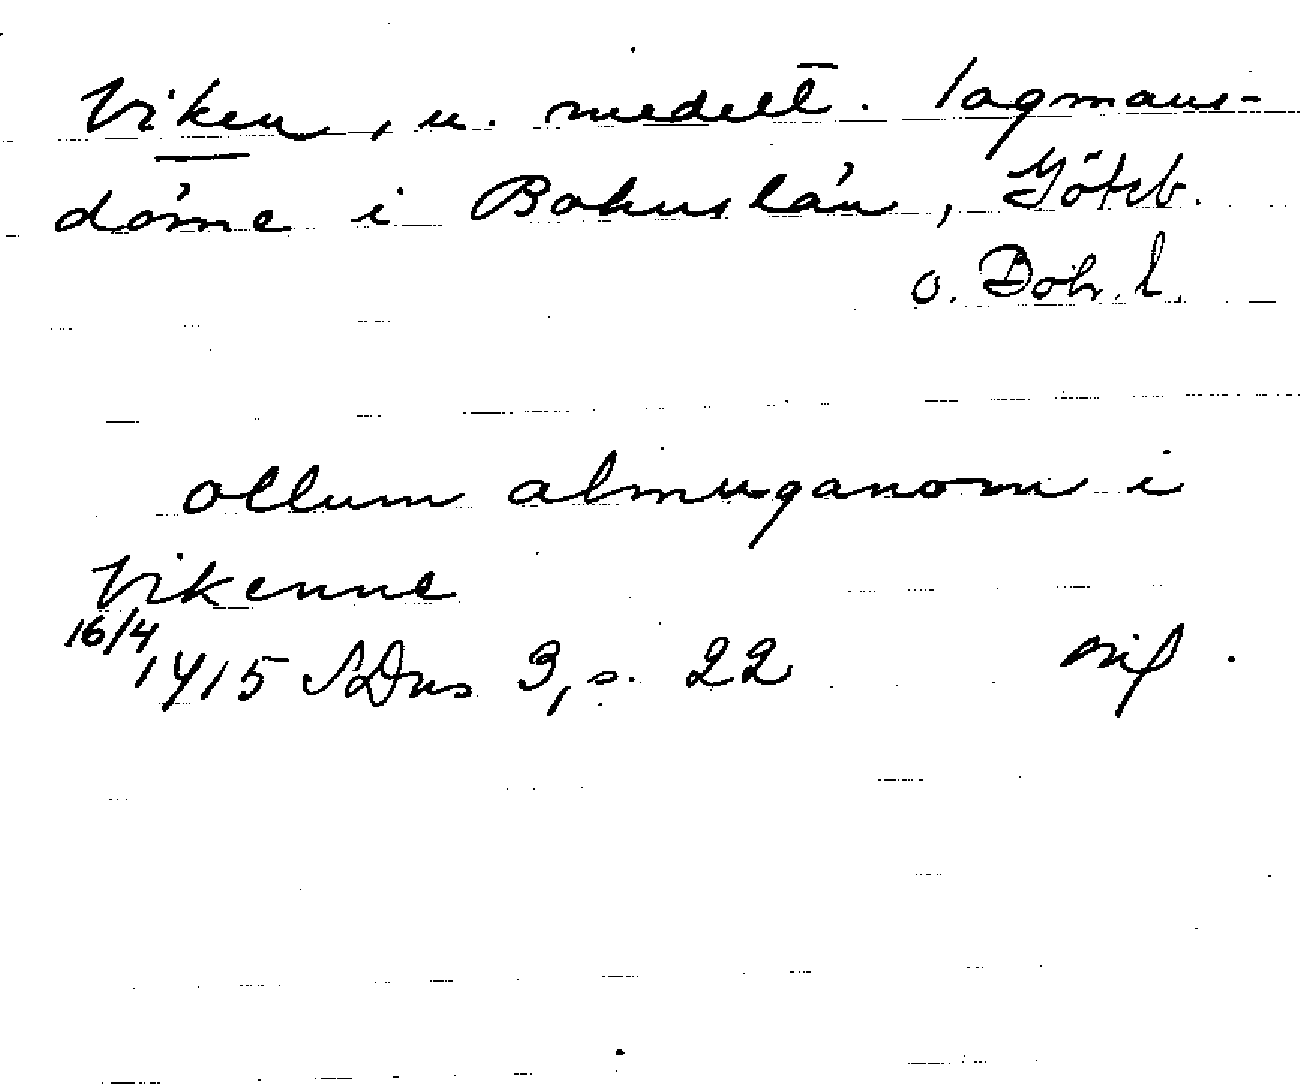 Viken, n. medelt. lagmans-
döme i Bohuslän, Göteb.
o. Boh. l.
ollum almuganom i
Vikenne
16/4
1415 SDns 3, s. 22